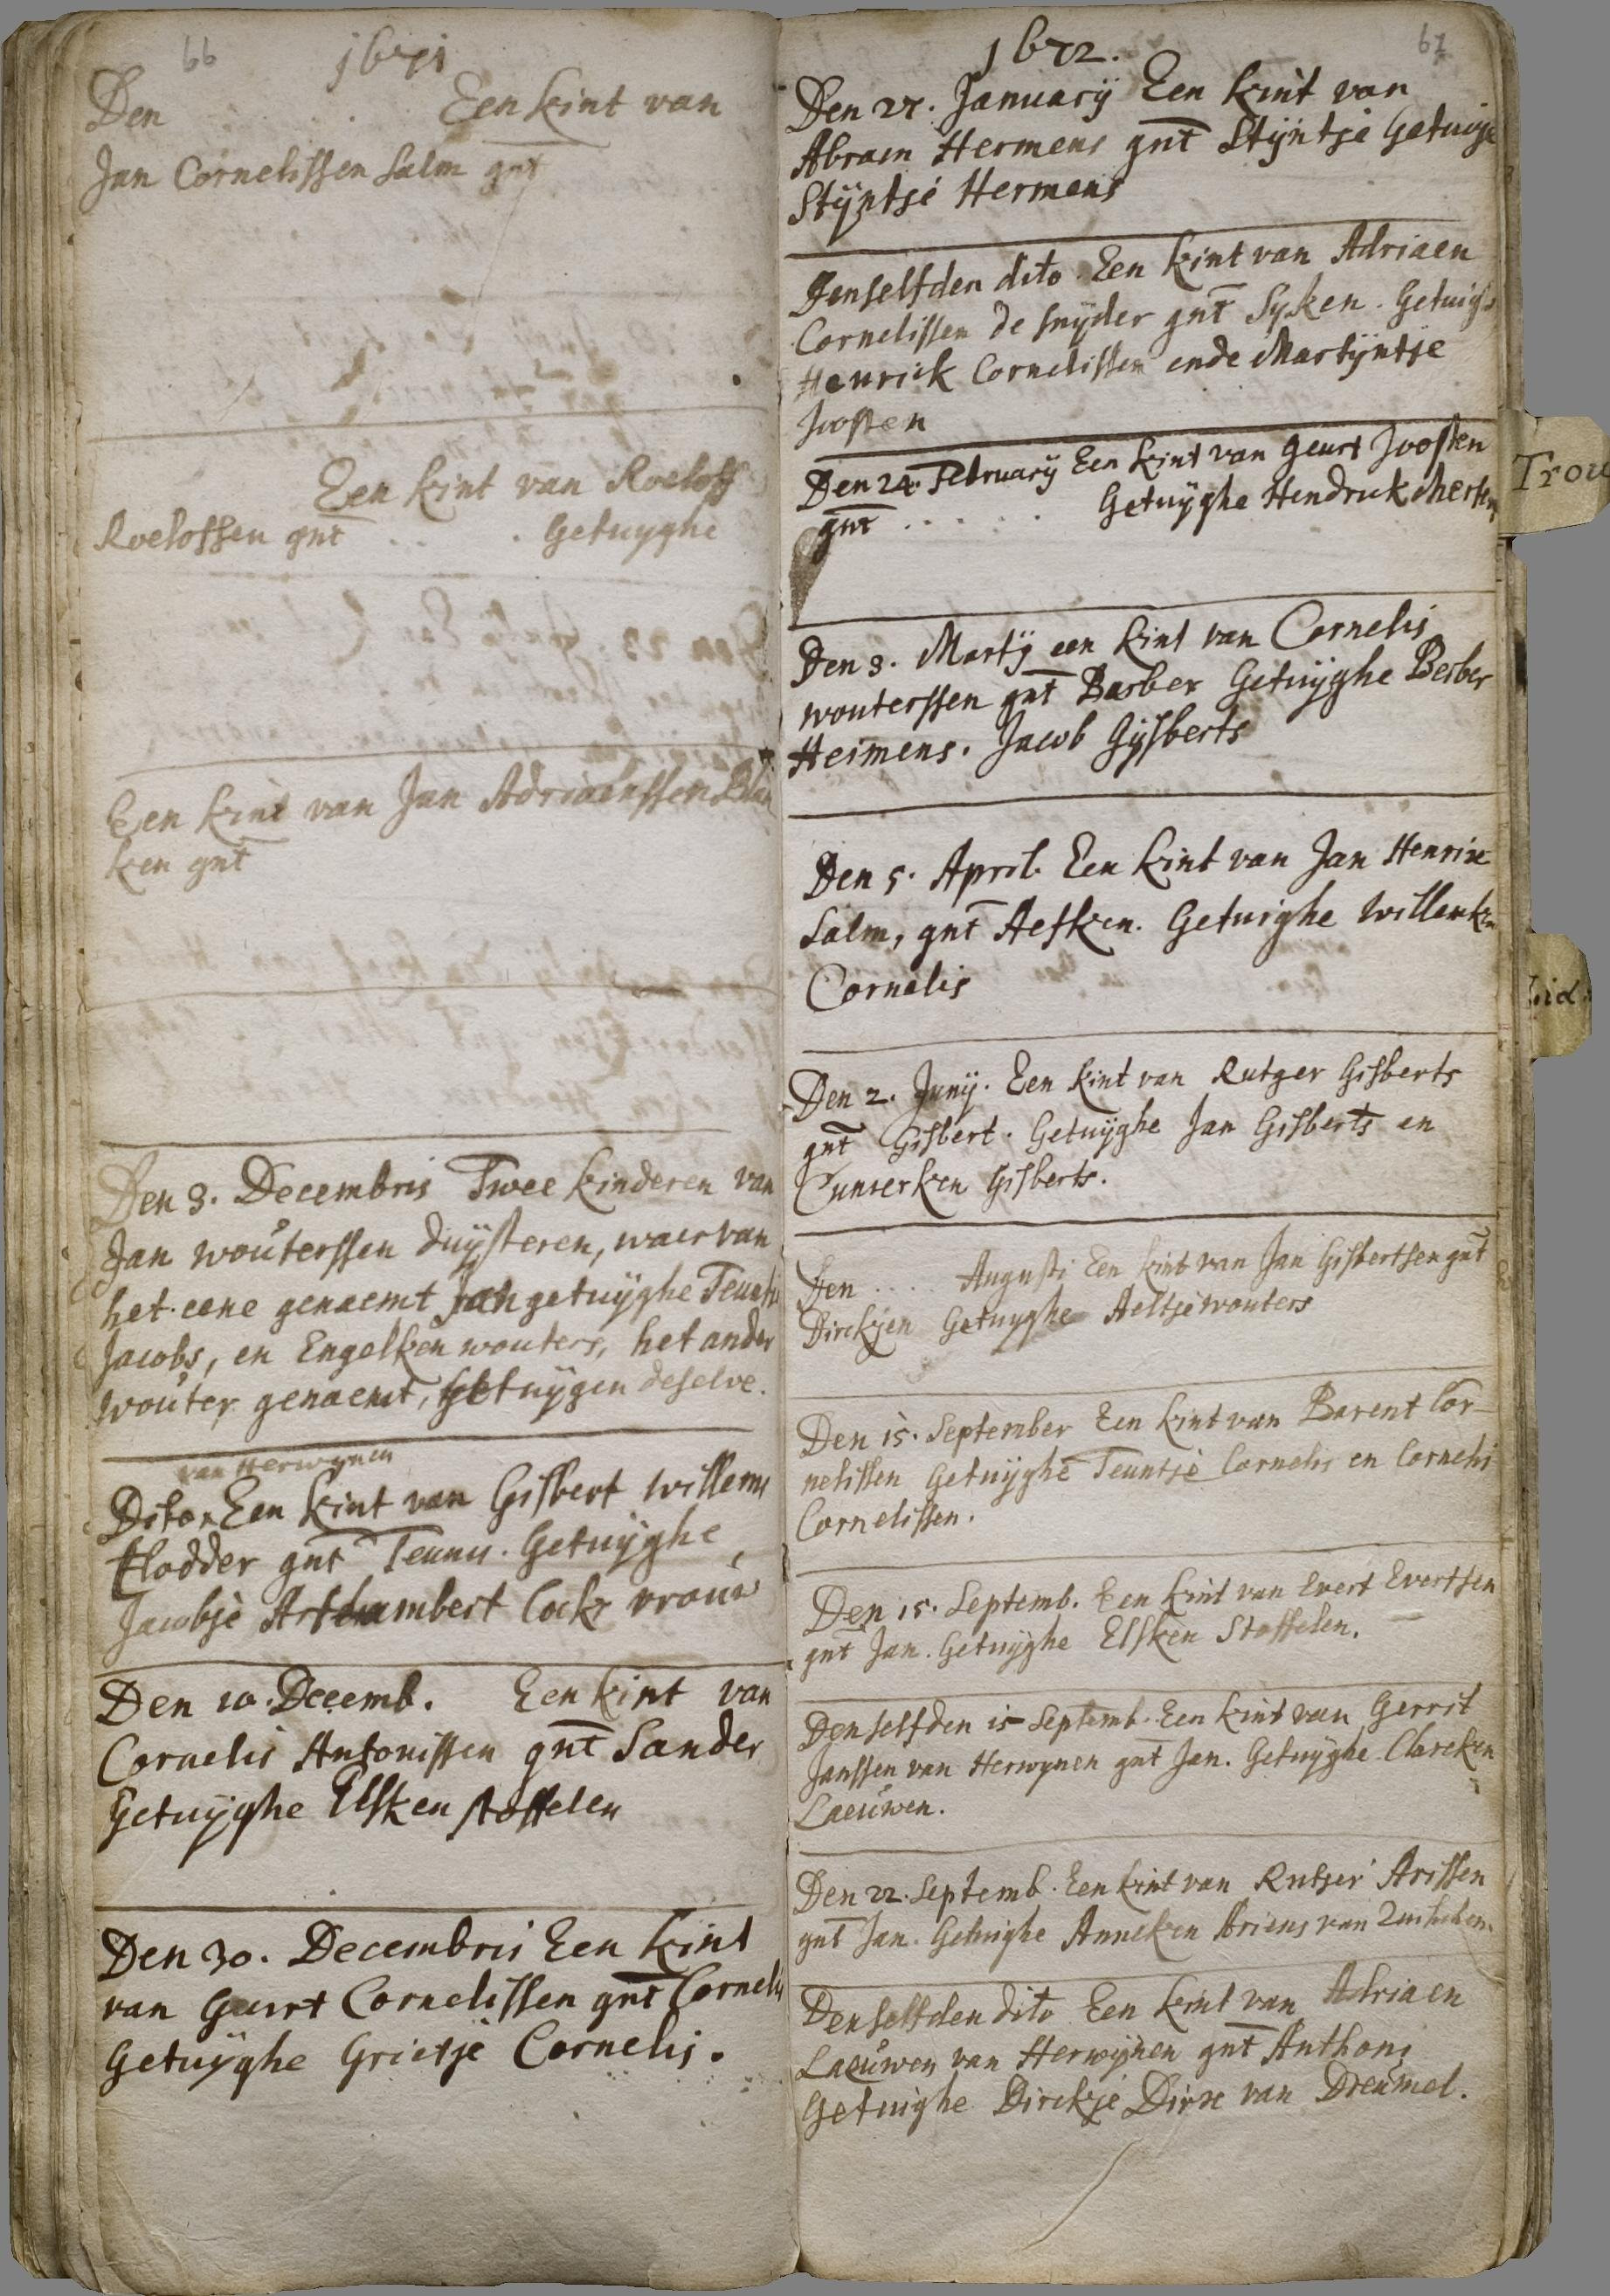 66
1671
Den . . . Een kint van
Jan Cornelissen Salm gnt
Een kint van Roeloff
Roeloffsen gnt . . . Getuyghe
Een kint van Jan Adriaenssen Blan
ken gnt
Den 3. Decembris Twee kinderen van
Jan wouterssen duÿsteren, waer van
het eene genaemt Jan getuÿghe
Jacobs, en Engelken wouters, het ander
wouter genaemt, getuÿgen deselve.
van Herwynen
Dito Een kint van Gisbert willems
Clodder gnt Teunis. Getuÿghe
Jacobje Lambert Cocks vrouw
Den 10. Decemb. Een kint van
Cornelis Antonissen gnt Sander
Getuÿghe Elsken stoffelen
Den 30. Decembris Een kint
van Geurt Cornelissen gnt Cornelis
Getuÿghe Grietje Cornelis.
67
1672.
Den 27. Januarÿ Een kint van
Abram Hermens gnt Stÿntje Getuige
Stÿntje Hermens
Denselfden dito Een kint van Adriaen
Cornelissen de snÿder gnt Syken. Getuigh
Henrick Cornelissen ende Martÿntje
Joosten
Den 24. Februarÿ Een kint van Geurt Joosten
gnt . . . . . . Getuÿghe Hendruk Mertens
Den 3. Martÿ een kint van Cornelis
wouterssen gnt Barber Getuÿghe Berber
Heimens. Jacob Gÿsberts
Den 5. April. Een kint van Jan Henrix
Salm, gnt Aefken. Getuighe Willemken
Cornelis
Den 2. Junÿ. Een kint van Rutger Gisberts
gnt Gisbert. Getuÿghe Jan Gisberts en
Cunerken Gisberts.
Den .... Augusti Een kint van Jan Gisbertsen gnt
Dirckjen Getuyghe Aeltje wouters
Den 15. September Een kint van Barent Cor-
nelissen Getuÿghe Teuntje Cornelis en Cornelis
Cornelissen.
Den 15. Septemb. Een kint van Evert Evertsen
gnt Jan. Getuÿghe Elsken Stoffelen.
Denselfden 15 Septemb. Een kint van Gerrit
Janssen van Herwynen gnt Jan. Getuÿghe Clareken
Laeuwen.
Den 22. Septemb. Een kint van Rutger Arissen
gnt Jan. Getuighe Anneken Ariens van
Denselfden dito Een kint van Adriaen
Laeuwen van Herwÿnen gnt Anthoni
Getuighe Dirckje Dirx van Dreumel.
Trou